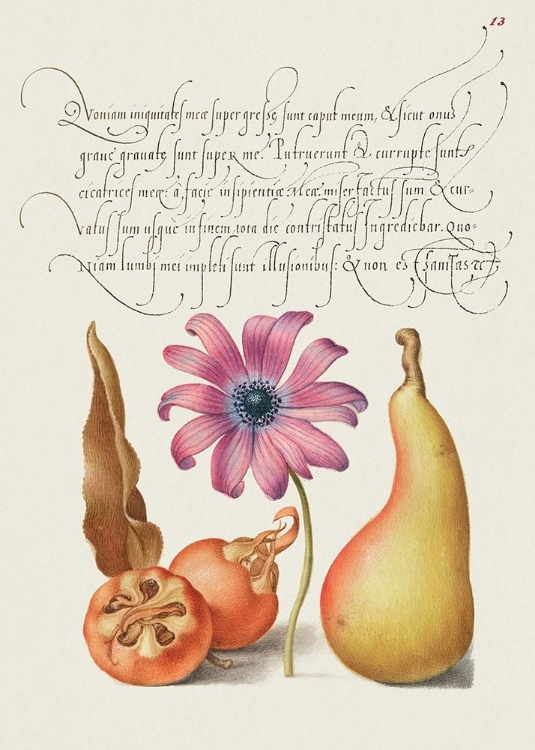 13
Quoniam iniquitates meæ supergressę sunt caput meum, & sicut onus
graue grauatę sunt super me. Putruerunt & corruptę sunt
cicatrices meę: a facie insipientiæ Meæ. miser factus sum & cur-
vatus sum usque in finem tota die contristatus Ingrediebar. Quo-
Niam lumbi mei impleti sunt illusionibus: & non est sanitas